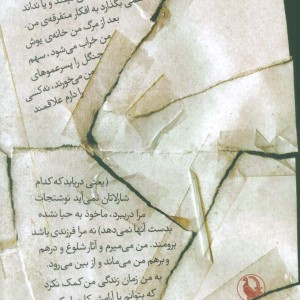 بگذارد به افکار متفرقه‌ی من.
بعد از مرگ من خانه‌ی یوش
من خراب می‌شود، سهم
جنگل را پسرعموهای
من می‌خورند، نه کسی
را دارم علاقمند
(یعنی دریابد که کدام
شارلاتان نمی‌آید نوشتجات
مرا دریبرد، ماخوذ به حیا نشده
بدست آنها نمی‌دهد) نه مرا فرزندی باشد
برومند. من می‌میرم و آثار شلوغ و درهم
و برهم من می‌ماند و از بین می‌رود.
به من زمان زندگی من کمک نکرد
که بتوانم با آرامش